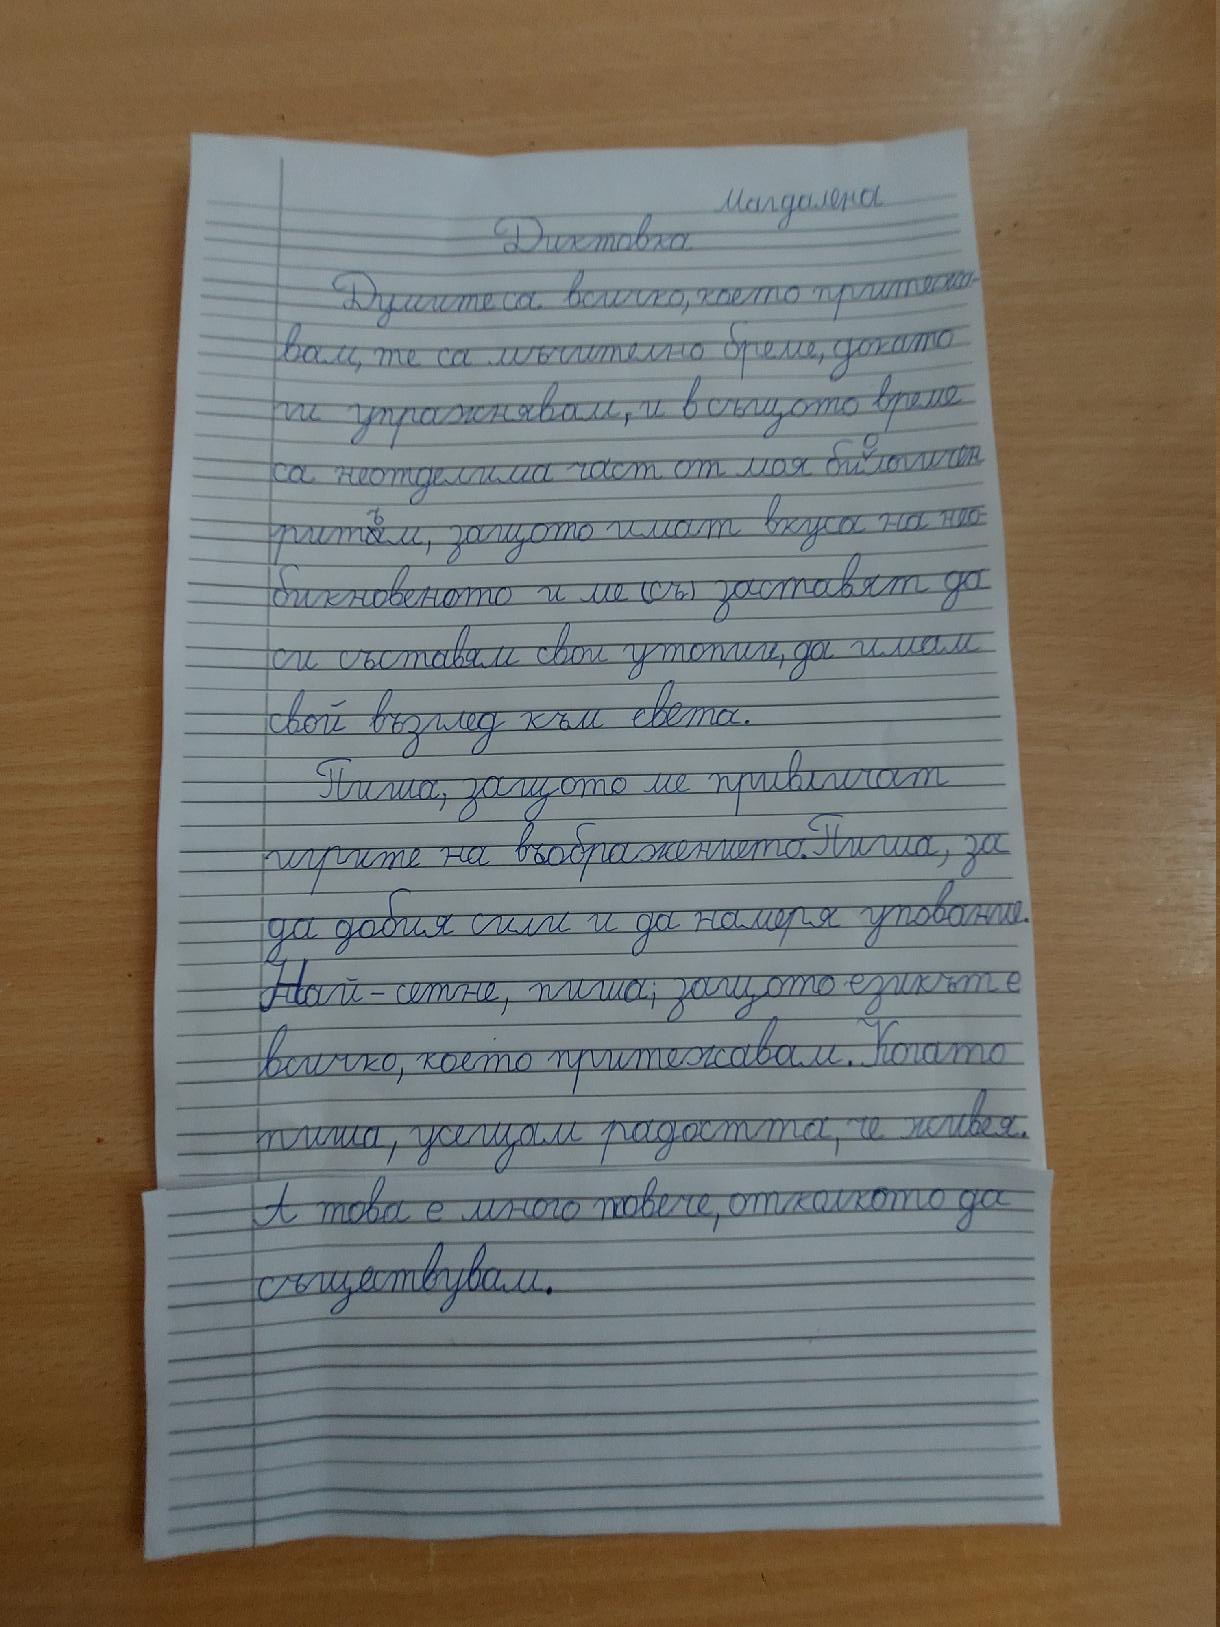 Магдалена
Диктовка
Думите са всичко, което притежа-
вам, те са мъчително бреме, докато
ги упражнявам, и в същото време
са неотделима част от моя биологичен
ритъм, защото имат вкуса на нео-
бикновеното и ме (съ) заставят да
си съставям свои утопии, да имам
свой възглед към света.
Пиша, защото ме привличат
игрите на въображението. Пиша, за
да добия сили и да намеря упование.
Най-сетне, пиша, защото езикът е
всичко, което притежавам. Когато
пиша, усещам радостта, че живея.
А това е много повече, отколкото да
съществувам.